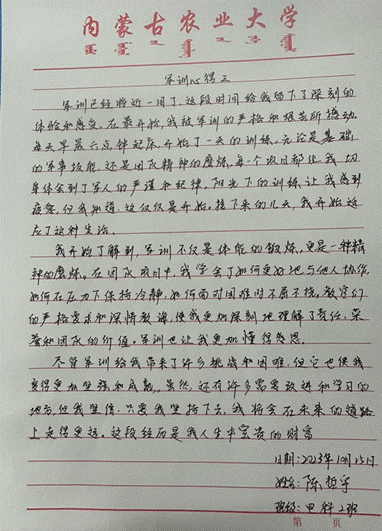 内蒙古农业大学
军训心得三
军训已经将近一周了，这段时间给我留下了深刻的
体验和感受。在最开始，我被军训的严格和艰苦所撼动
每天早晨六点钟起床，开始了一天的训练。无论是基础
的军事技能，还是团队精神的磨炼，每个项目都让我切
身体会到了军人的严谨和纪律。阳光下的训练，让我感到
疲惫，但我知道，这仅仅是开始。接下来的几天，我开始适
应了这种生活。
我开始了解到，军训不仅是体能的锻炼，更是一种精
神的磨炼。在团队项目中，我学会了如何更好地与他人协作，
如何在压力下保持冷静，如何面对困难时不屈不挠。教官们
的严格要求和深情教诲，使我更加深刻地理解了责任，荣
誉和团队的价值。军训也让我更加懂得感恩。
尽管军训给我带来了许多挑战和困难，但它也使我
变得更加坚强和成熟。虽然，还有许多需要改进和学习的
地方，但我坚信，只要我坚持下去，我将会在未来的道路
上走得更远。这段经历是我人生中宝贵的财富
日期：2023年10月15日
姓名：陈哲宇
班级：电科2班
第 页